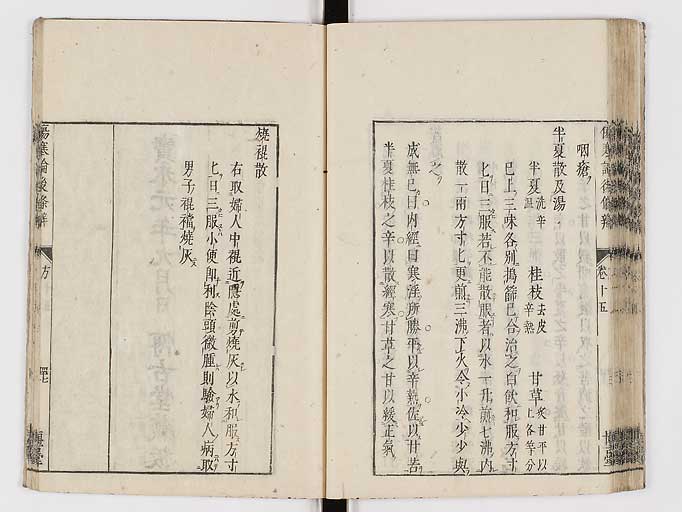 傷寒論後條辨
卷十五
咽瘡
半夏散及湯
半夏 洗辛溫 桂枝 去皮辛熱 甘草 炙甘平以上各等分
已上三味各別搗篩已合治之白飲和服方寸
匕日三服若不能散服者以水一升煎七沸內
散一兩方寸匕更煎三沸下火令小冷少少與
之
成無已曰內經曰寒淫所勝平以辛熱佐以甘苦
半夏桂枝之辛以散經寒甘草之甘以緩正氣
燒裩散
右取婦人中裩近隱處剪燒灰以水和服方寸
匕日三服小便即利陰頭微腫則驗婦人病取
男子裩襠燒灰
傷寒論後條辨
方